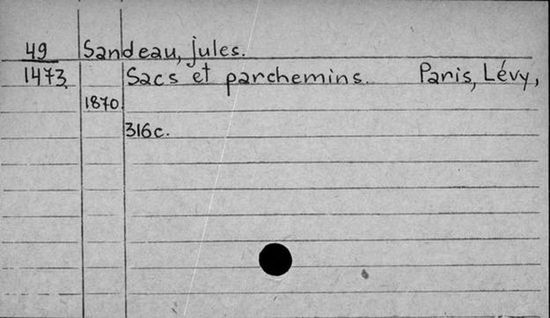 49 Sandeau, jules.
1473. Sacs et parchemins. Paris, Lévy,
1870.
316c.